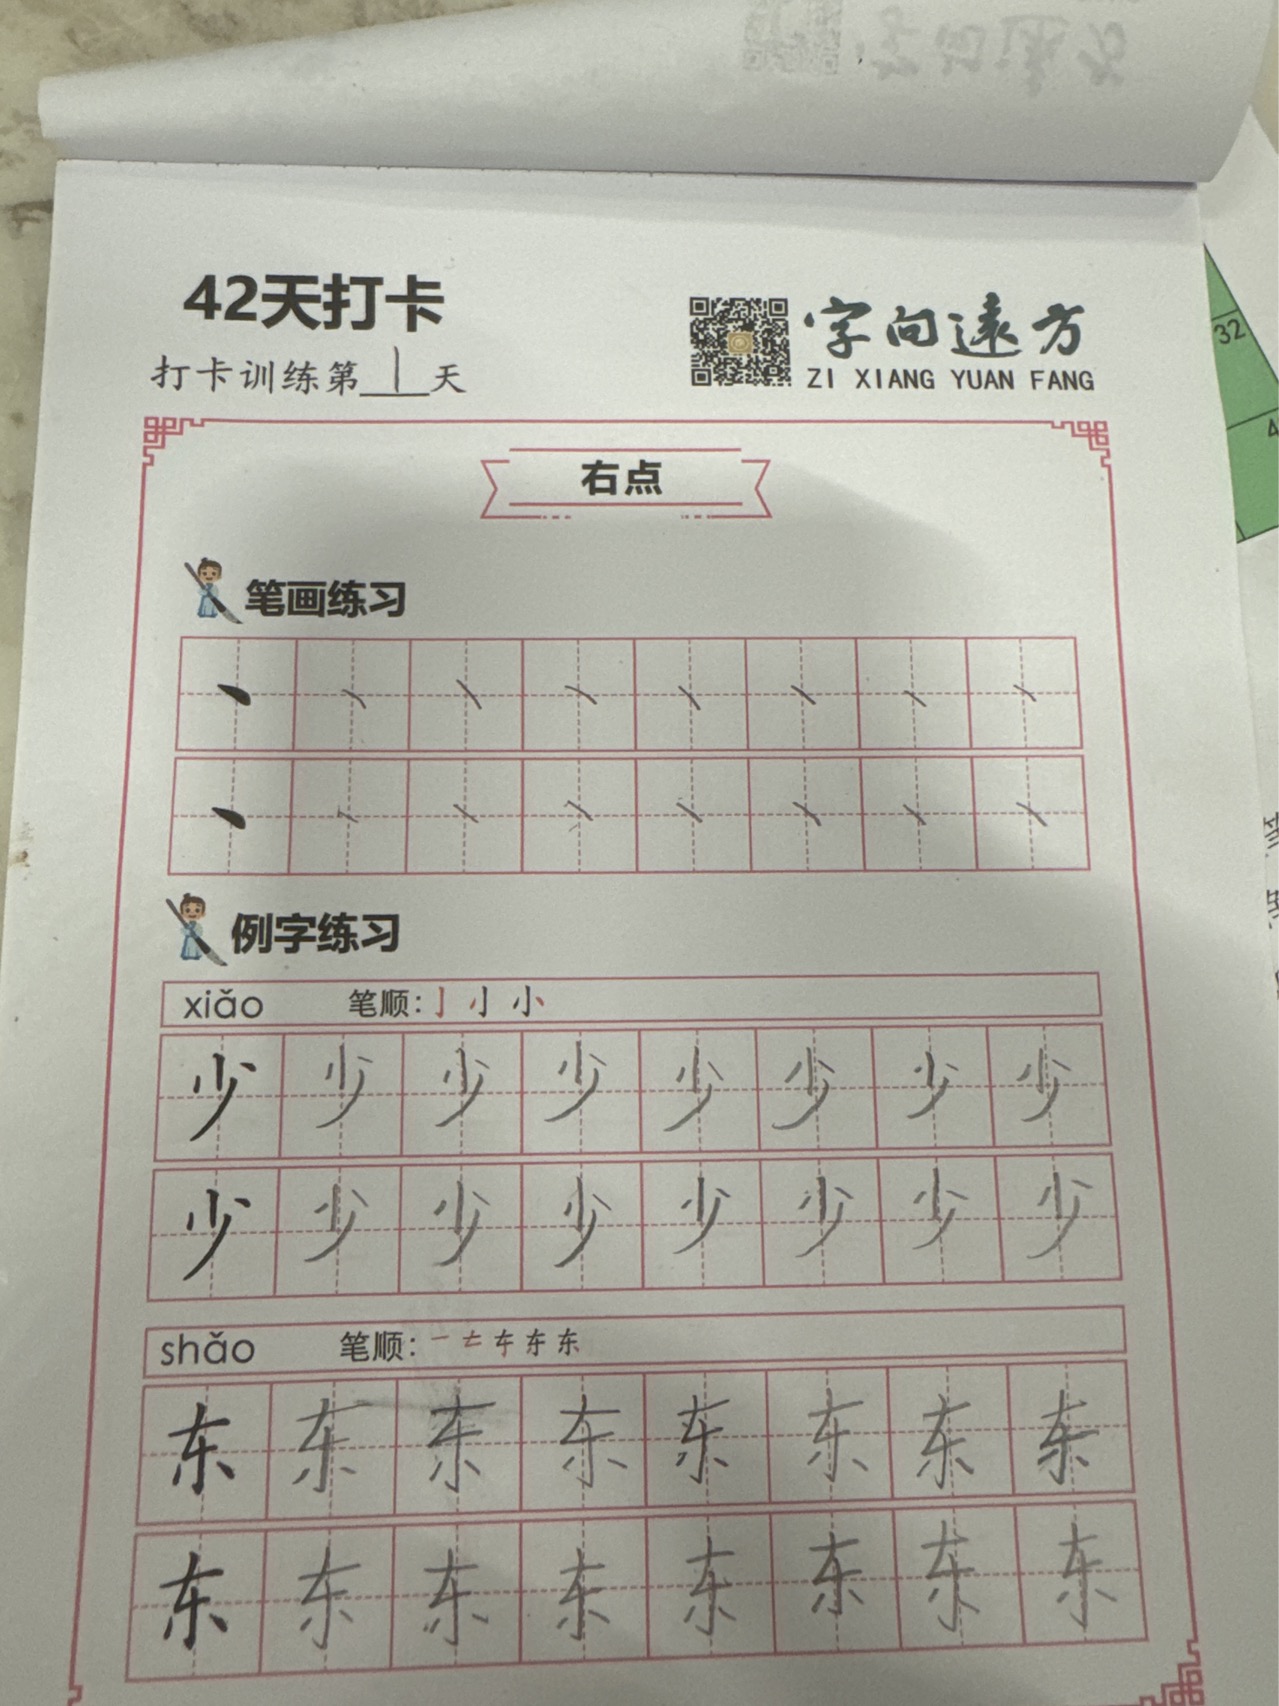 42天打卡
打卡训练第1天
字向远方
ZI XIANG YUAN FANG
32
4
右点
笔画练习
丶丶丶丶丶丶丶丶
丶丶丶丶丶丶丶丶
例字练习
xiǎo 笔顺：亅 小 小
少少少少少少少少
少少少少少少少少
shǎo 笔顺：一 𠂇 车 东 东
东东东东东东东东
东东东东东东东东